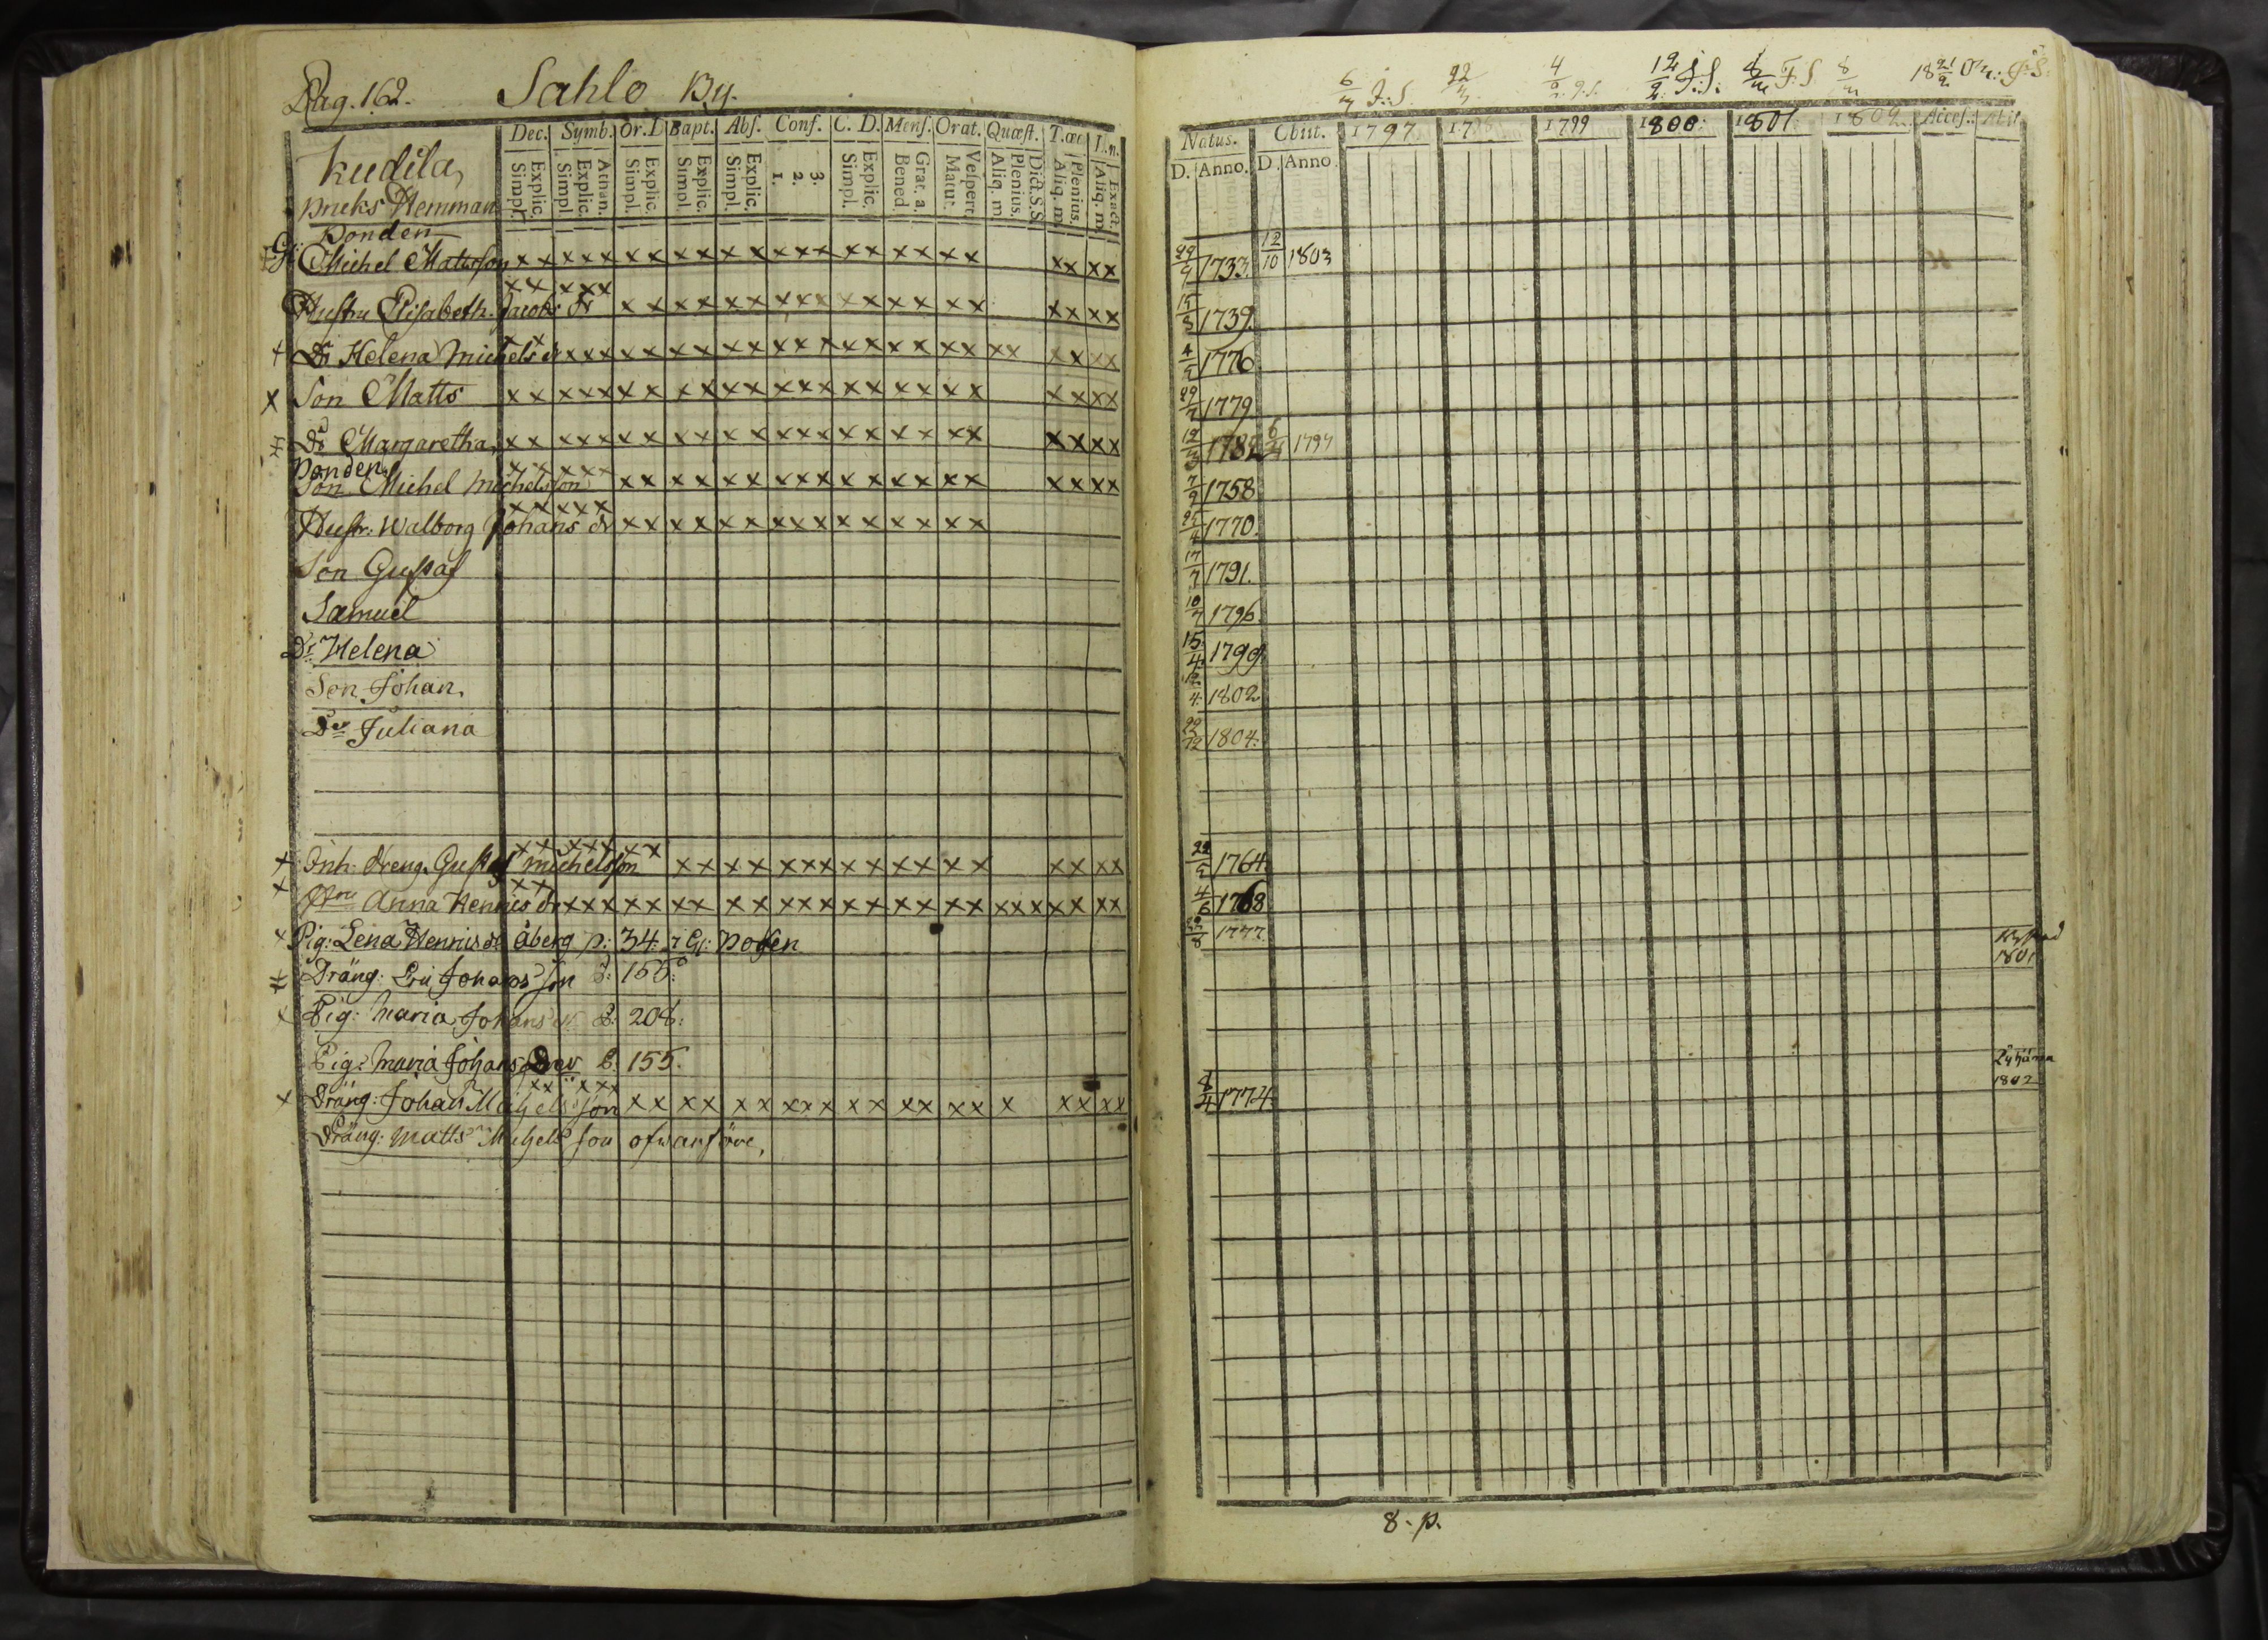 Pag. 162. Sahlo By.
Dec. Symb. Or. D Bapt. Abs. Conf. C. D. Mens. Orat. Quæst. T. œc
Explic. Simpl. Athan. Explic. Simpl. Explic. Simpl. Explic. Simpl. Explic. Simpl. 3. 2. 1. Explic. Simpl. Grat. a. Bened. Vespert. Matut. Dict. S. S. Plenius. Aliq. m Plenius. Aliq. m Exact. Aliq. m
Kudila,
Hemman
Bonden
Michel Matsson
Hustru Elisabeth Jacobs dr
Dr Helena Michels dr
Son Matts
Dr Margaretha,
Bonden
Son Michel Michelsson
Hustr: Walborg Johans dr
Son Gustaf
Samuel
Dr Helena
Son Johan.
Dr Juliana
Inh: dreng. Gustaf Michelsson
Anna Hennics dr
Pig: Lena Hennics dr Åberg p: 34
Dräng: Eric Johansson P: 155:
Pig: Maria Johans dr P: 208:
Pig: Maria Johans Dr P. 155.
Dräng: Johan Michelsson
Dräng: Matts Michelsson ofwanföre,
6/7 J: S. 22/3 4/2 12/2 J: S: F: S 8/ 18 21/2
Natus. Obiit. 1797 1799 1800: 1801. 1802 Acces. Abit
D. Anno. D. Anno.
29/9 1733. 12/10 1803
15/3 1739.
4/2 1776
29/7 1779
12/3 1782 6/4 1797
7/2 1758
1770.
17/7 1791.
10/7 1796.
15/4 1799.
12/4: 1802
22/12 1804:
22/2 1764.
4/6 1768
1777.
1801
1802
8/4 1774
8. p.